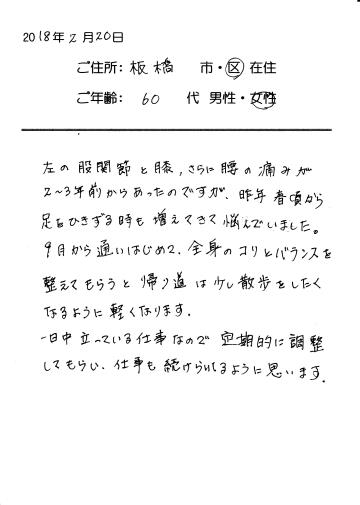 2018年2月20日
ご住所: 板橋 市・区 在住
ご年齢: 60 代 男性・女性
左の股関節と膝、さらに腰の痛みが
2~3年前からあったのですが、昨年春頃から
足をひきずる時も増えてきて悩んでいました。
9月から通いはじめて、全身のコリとバランスを
整えてもらうと帰り道は少し散歩をしたく
なるように軽くなります。
一日中立っている仕事なので定期的に調整
してもらい、仕事も続けられてるように思います。